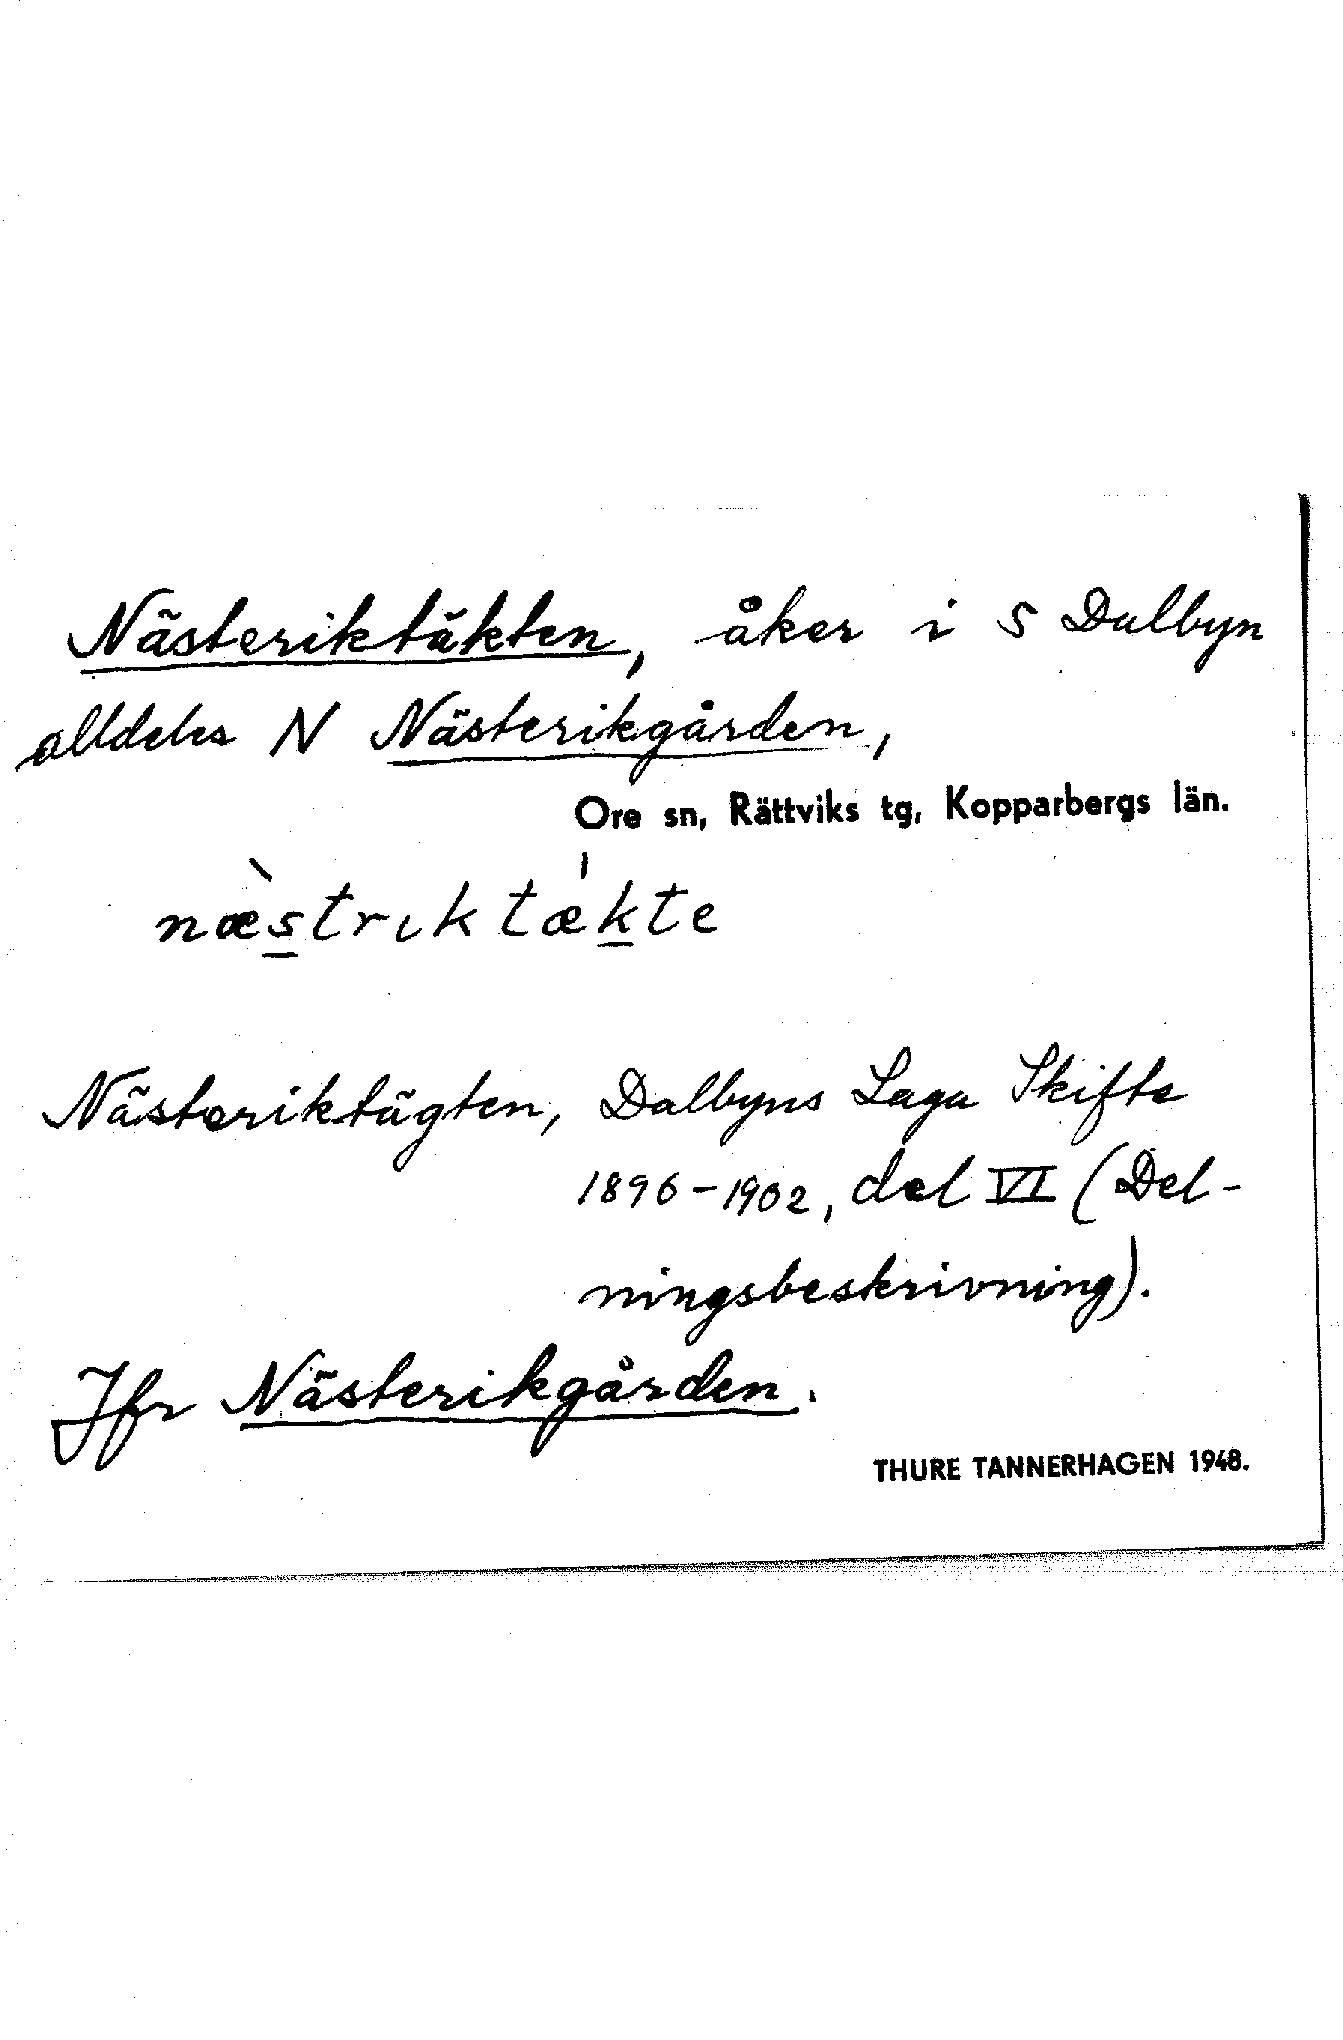 Nästeriktäkten, åker i S Dalbyn
alldeles N Nästerikgården,
Ore sn, Rättviks tg, Kopparbergs län.
næ̀s̲trıktæ̍k̲te
Nästeriktägten, Dalbyns Laga Skifte
1896-1902, del VI (Del-
ningsbeskrivning).
Jfr Nästerikgården.
THURE TANNERHAGEN 1948.